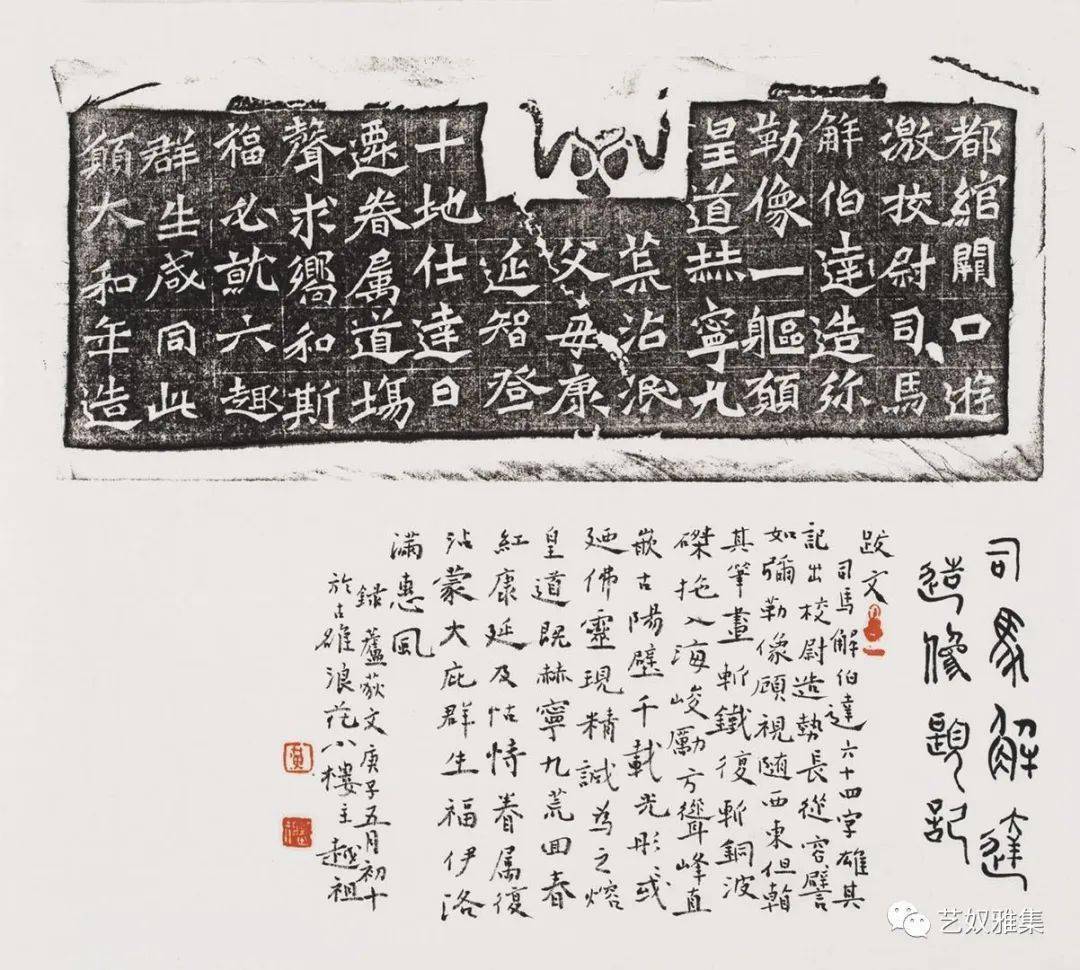 都綰闕口遊
激校尉司馬
解伯達造弥
勒像一軀願
皇道赫寧九
荒沾泯
父母康
延智登
十地仕達日
遷眷属道場
聲求嚮和斯
福必就六趣
群生咸同此
願太和年造
司馬解達
造像題記
跋文
司馬解伯達六十四字雄其
記出校尉造勢長從容譬
如彌勒像顧視随西東但
其筆畫斬鐵復斬銅波
磔拖入海峻勵方聳峰直
嵌古陽壁千載光彤彡或
廼佛靈現精誠為之熔
皇道既赫寧九荒回春
紅康延及怙恃眷属復
沾蒙大庇群生福伊洛
滿惠風
録蘆荻文庚子五月初十
於古雒浪花小樓主越祖
艺奴雅集